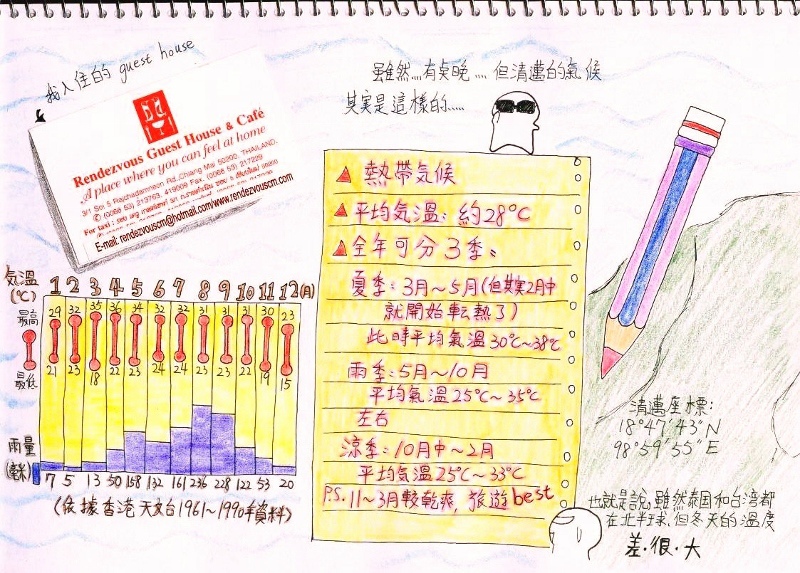 我入住的 guest house
Rendezvous Guest House & Café
A place where you can feel at home
3/1 Soi 5 Rajchadamneun Rd.,Chiang Mai 50200, THAILAND.
E-mail: rendezvouscm@hotmail.com/www.rendezvouscm.com
雖然....有點晚.... 但清邁的氣候
其實是這樣的.....
▲ 熱帶気候
▲ 平均気温: 約28°C
▲ 全年可分3季:
夏季: 3月~5月(但其實2月中
就開始転熱了)
此時平均氣溫30°C~38°C
雨季: 5月~10月
平均氣溫25°C~35°C
左右
涼季: 10月中~2月
平均気温25°C~33°C
P.S. 11~3月較乾爽, 旅遊best
気温 1 2 3 4 5 6 7 8 9 10 11 12(月)
(°C)
最高 29 32 35 36 34 32 32 31 31 31 30 23
最低 21 23 18 22 23 24 24 23 23 22 19 15
雨量
(毫米) 7 5 13 50 158 132 161 236 228 122 53 20
(依據香港天文台1961~1990年資料)
清邁座標:
18°47'43"N
98°59'55"E
也就是說, 雖然泰国和台湾都
在北半球, 但冬天的溫度
差·很·大